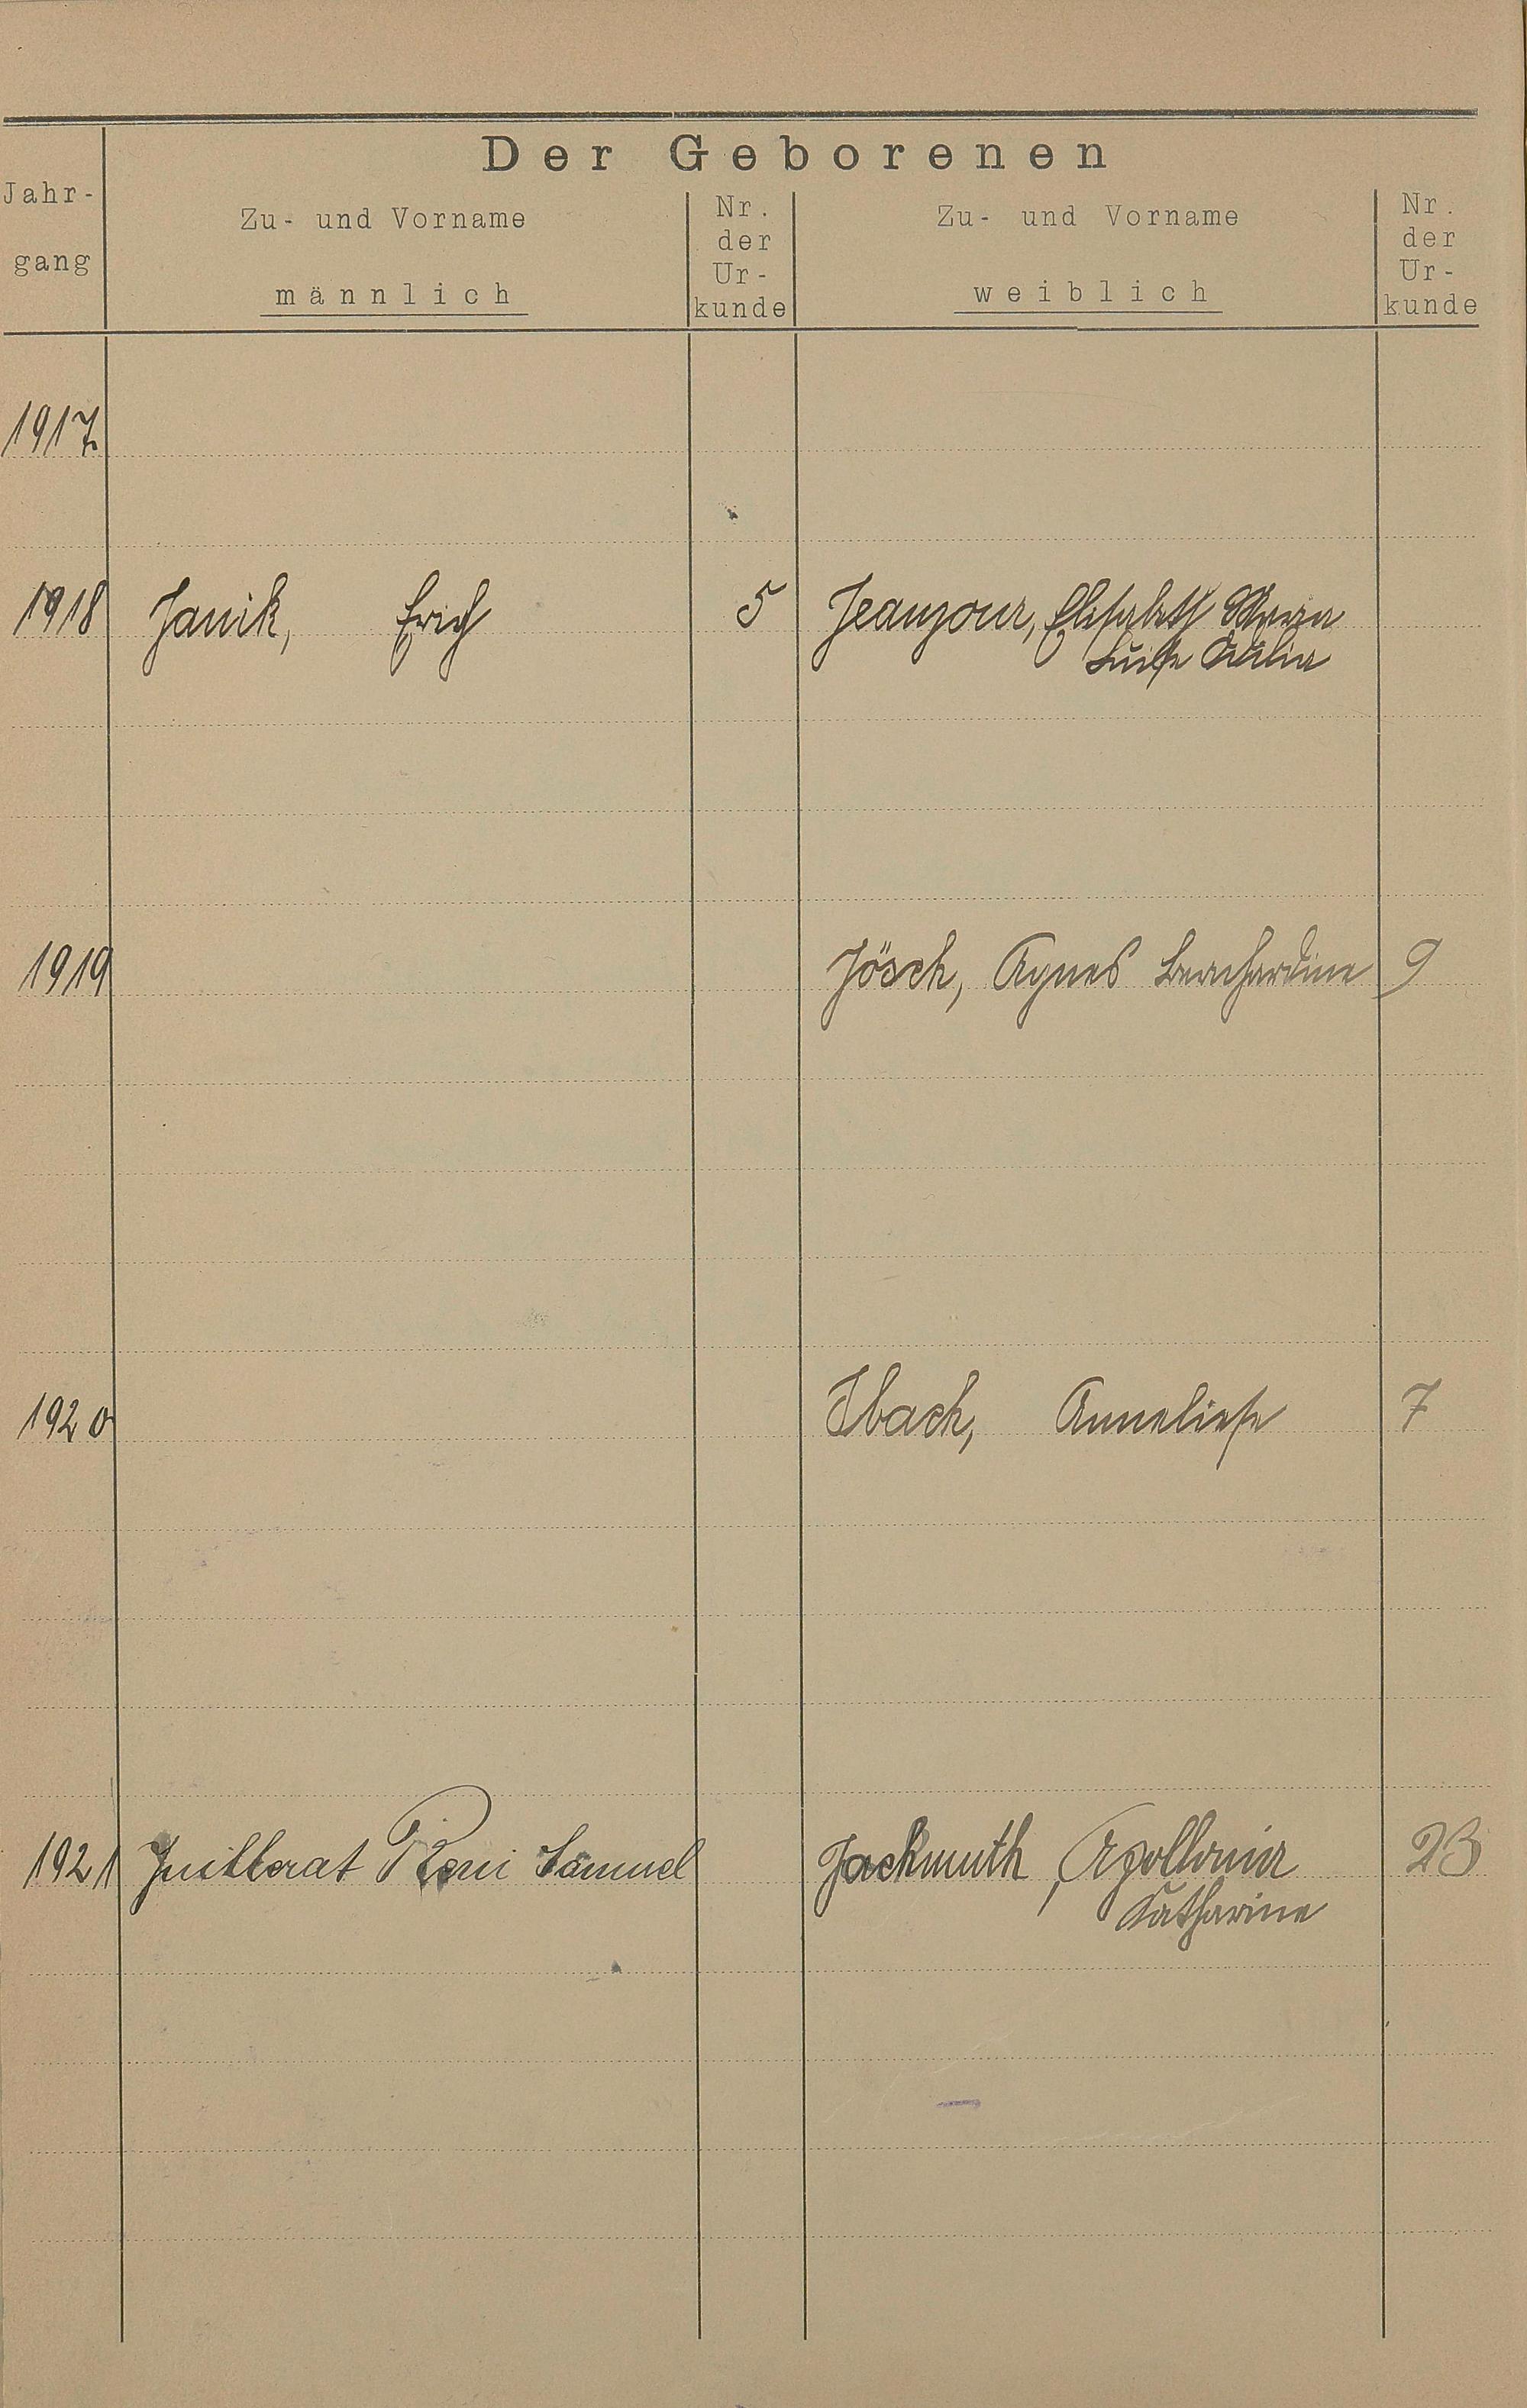 Der Geborenen
Jahr-
gang
Zu- und Vorname
männlich
Nr.
der
Ur-
kunde
Zu- und Vorname
weiblich
Nr.
der
Ur-
kunde
1917
1918 Janik, Erich 5 Elisabeth Maria
Luise Julia
1919 Jösch, Agnes Bernhardine 9
1920 Ibach, Anneliese 7
1921 Juillerat Samuel Jackmuth, Apollonia 23
Katharina